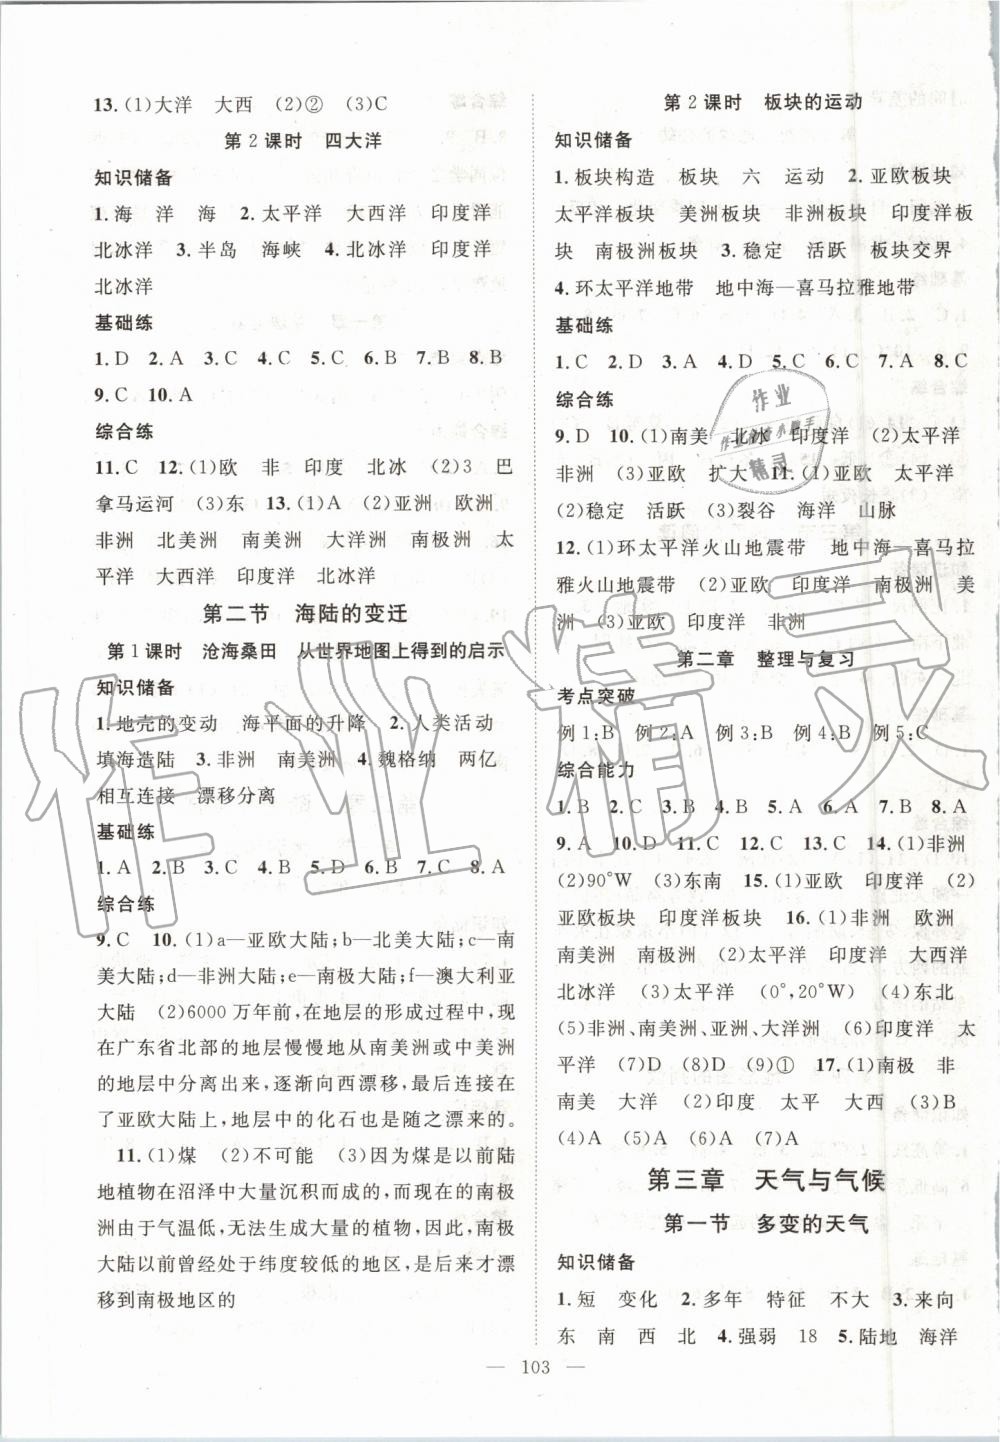 13.(1)大洋　大西　(2)②　(3)C
第2课时　四大洋
知识储备
1.海　洋　海　2.太平洋　大西洋　印度洋
北冰洋　3.半岛　海峡　4.北冰洋　印度洋
北冰洋
基础练
1.D　2.A　3.C　4.C　5.C　6.B　7.B　8.B
9.C　10.A
综合练
11.C　12.(1)欧　非　印度　北冰　(2)3　巴
拿马运河　(3)东　13.(1)A　(2)亚洲　欧洲
非洲　北美洲　南美洲　大洋洲　南极洲　太
平洋　大西洋　印度洋　北冰洋
第二节　海陆的变迁
第1课时　沧海桑田　从世界地图上得到的启示
知识储备
1.地壳的变动　海平面的升降　2.人类活动
填海造陆　3.非洲　南美洲　4.魏格纳　两亿
相互连接　漂移分离
基础练
1.A　2.B　3.C　4.B　5.D　6.B　7.C　8.A
综合练
9.C　10.(1)a—亚欧大陆;b—北美大陆;c—南
美大陆;d—非洲大陆;e—南极大陆;f—澳大利亚
大陆　(2)6000万年前,在地层的形成过程中,现
在广东省北部的地层慢慢地从南美洲或中美洲
的地层中分离出来,逐渐向西漂移,最后连接在
了亚欧大陆上,地层中的化石也是随之漂来的。
11.(1)煤　(2)不可能　(3)因为煤是以前陆
地植物在沼泽中大量沉积而成的,而现在的南极
洲由于气温低,无法生成大量的植物,因此,南极
大陆以前曾经处于纬度较低的地区,是后来才漂
移到南极地区的
第2课时　板块的运动
知识储备
1.板块构造　板块　六　运动　2.亚欧板块
太平洋板块　美洲板块　非洲板块　印度洋板
块　南极洲板块　3.稳定　活跃　板块交界
4.环太平洋地带　地中海—喜马拉雅地带
基础练
1.C　2.D　3.A　4.D　5.C　6.C　7.A　8.C
综合练
9.D　10.(1)南美　北冰　印度洋　(2)太平洋
非洲　(3)亚欧　扩大　11.(1)亚欧　太平洋
(2)稳定　活跃　(3)裂谷　海洋　山脉
12.(1)环太平洋火山地震带　地中海—喜马拉
雅火山地震带　(2)亚欧　印度洋　南极洲　美
洲　(3)亚欧　印度洋　非洲
第二章　整理与复习
考点突破
例1:B　例2:A　例3:B　例4:B　例5:C
综合能力
1.B　2.C　3.B　4.B　5.A　6.A　7.B　8.A
9.A　10.D　11.C　12.C　13.C　14.(1)非洲
(2)90°W　(3)东南　15.(1)亚欧　印度洋　(2)
亚欧板块　印度洋板块　16.(1)非洲　欧洲
南美洲　南极洲　(2)印度洋　大西洋　太平洋
北冰洋　(3)太平洋　(0°,20°W)　(4)东北
(5)非洲、南美洲、亚洲、大洋洲　(6)印度洋　太
平洋　(7)D　(8)D　(9)①　17.(1)南极　非
南美　大洋　(2)印度　太平　大西　(3)B
(4)A　(5)A　(6)A　(7)A
第三章　天气与气候
第一节　多变的天气
知识储备
1.短　变化　2.多年　特征　不大　3.来向
东　南　西　北　4.强弱　18　5.陆地　海洋
— 103 —
作业精灵
作业
作业检查小助手
精灵